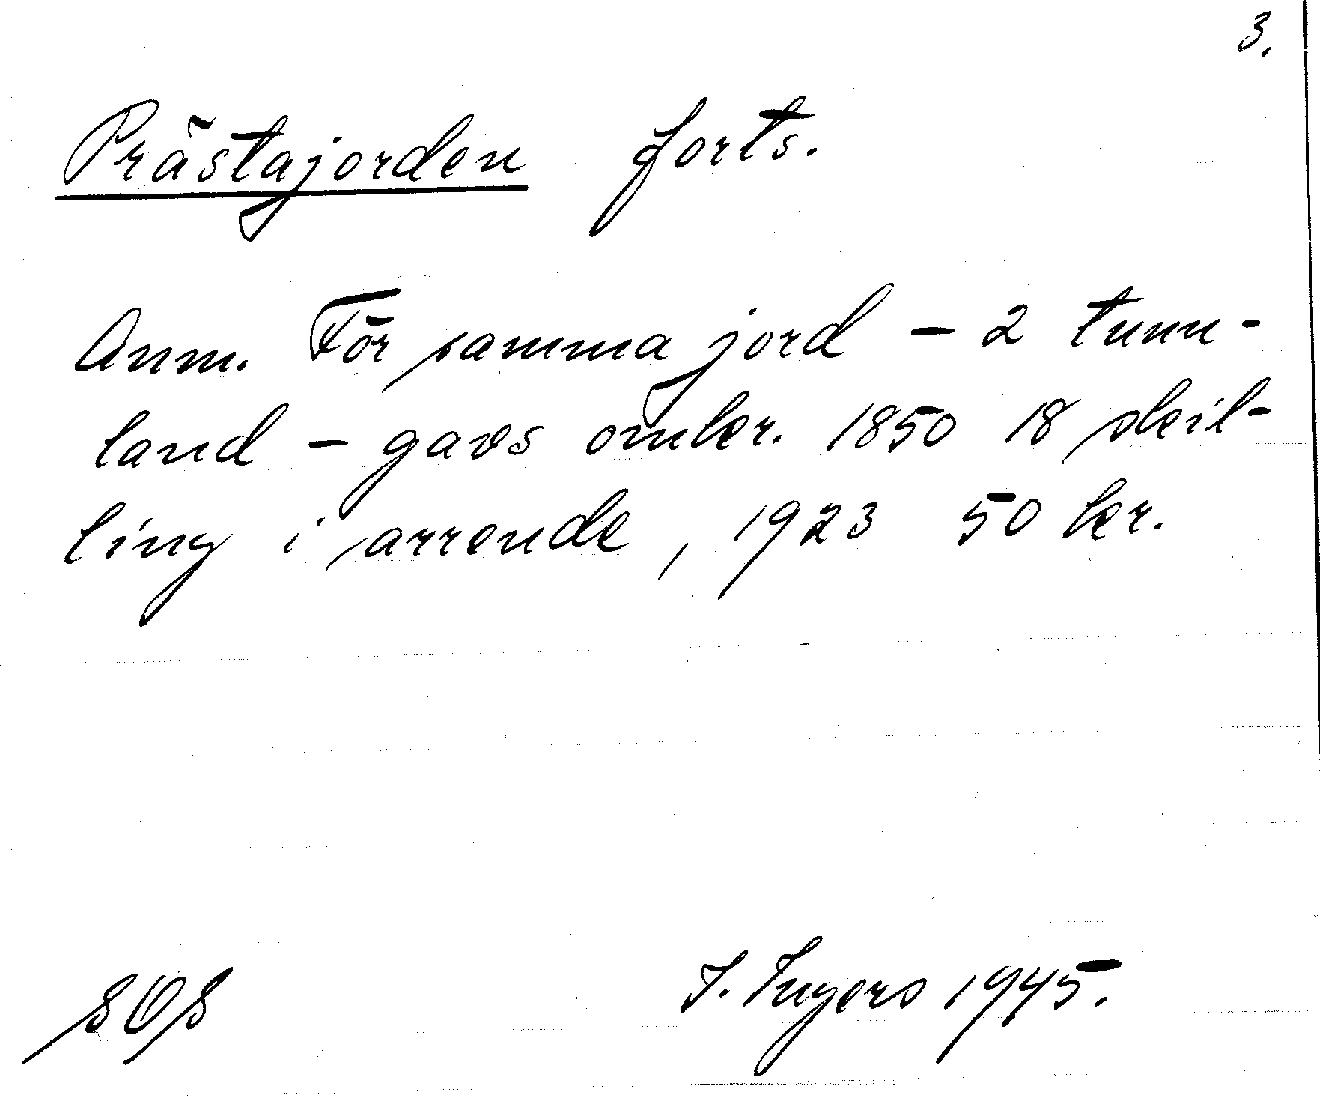 3.
Prästajorden forts.
Anm. För samma jord - 2 tunn-
land - gavs omkr. 1850 18 skil-
ling i arrende, 1923 50 kr.
SOS I. Ingers 1945.